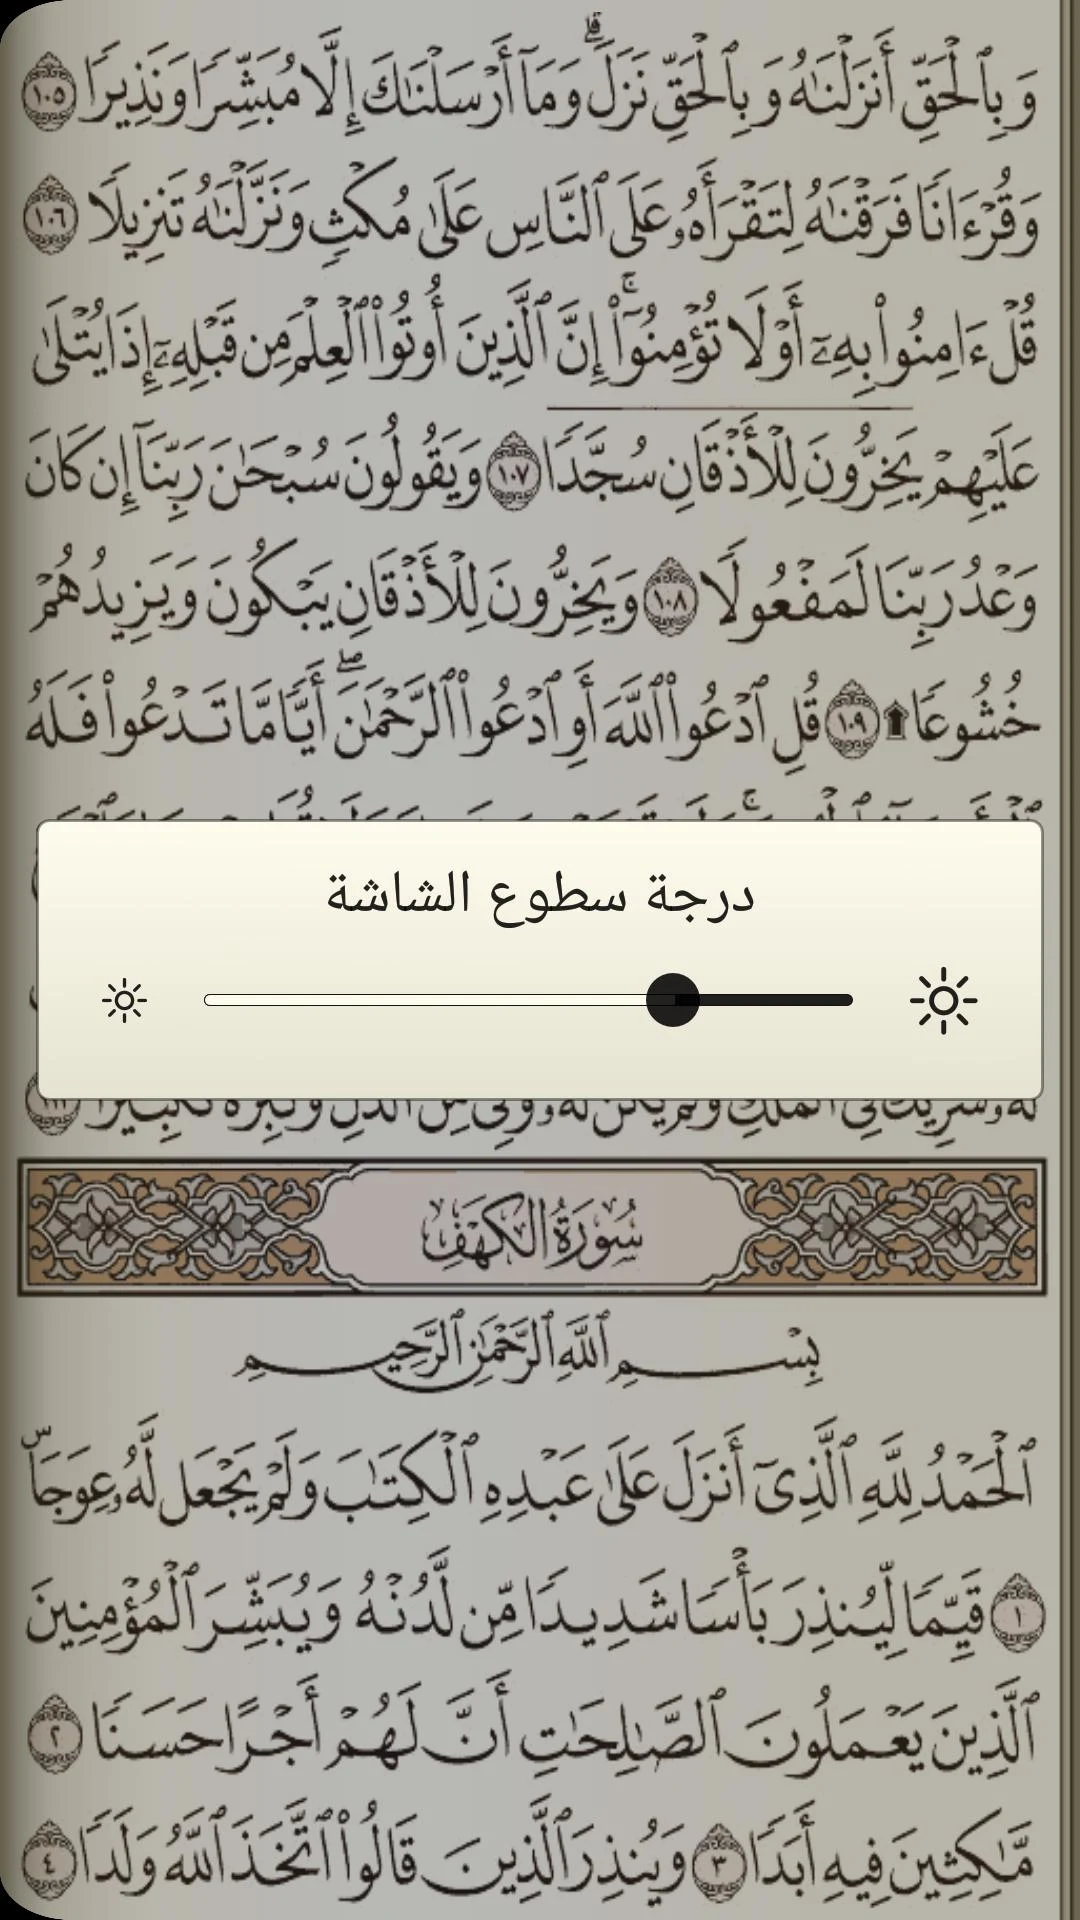 وَبِٱلْحَقِّ أَنزَلْنَٰهُ وَبِٱلْحَقِّ نَزَلَ ۗ وَمَآ أَرْسَلْنَٰكَ إِلَّا مُبَشِّرًا وَنَذِيرًا ١٠٥
وَقُرْءَانًا فَرَقْنَٰهُ لِتَقْرَأَهُۥ عَلَى ٱلنَّاسِ عَلَىٰ مُكْثٍ وَنَزَّلْنَٰهُ تَنزِيلًا ١٠٦
قُلْ ءَامِنُوا۟ بِهِۦٓ أَوْ لَا تُؤْمِنُوٓا۟ ۚ إِنَّ ٱلَّذِينَ أُوتُوا۟ ٱلْعِلْمَ مِن قَبْلِهِۦٓ إِذَا يُتْلَىٰ
عَلَيْهِمْ يَخِرُّونَ لِلْأَذْقَانِ سُجَّدًا ١٠٧ وَيَقُولُونَ سُبْحَٰنَ رَبِّنَآ إِن كَانَ
وَعْدُ رَبِّنَا لَمَفْعُولًا ١٠٨ وَيَخِرُّونَ لِلْأَذْقَانِ يَبْكُونَ وَيَزِيدُهُمْ
خُشُوعًا ۩ ١٠٩ قُلِ ٱدْعُوا۟ ٱللَّهَ أَوِ ٱدْعُوا۟ ٱلرَّحْمَٰنَ ۖ أَيًّا مَّا تَدْعُوا۟ فَلَهُ
درجة سطوع الشاشة
سُورَةُ الكَهْفِ
بِسْمِ ٱللَّهِ ٱلرَّحْمَٰنِ ٱلرَّحِيمِ
ٱلْحَمْدُ لِلَّهِ ٱلَّذِىٓ أَنزَلَ عَلَىٰ عَبْدِهِ ٱلْكِتَٰبَ وَلَمْ يَجْعَل لَّهُۥ عِوَجَا ۜ
١ قَيِّمًا لِّيُنذِرَ بَأْسًا شَدِيدًا مِّن لَّدُنْهُ وَيُبَشِّرَ ٱلْمُؤْمِنِينَ
ٱلَّذِينَ يَعْمَلُونَ ٱلصَّٰلِحَٰتِ أَنَّ لَهُمْ أَجْرًا حَسَنًا ٢
مَّٰكِثِينَ فِيهِ أَبَدًا ٣ وَيُنذِرَ ٱلَّذِينَ قَالُوا۟ ٱتَّخَذَ ٱللَّهُ وَلَدًا ٤